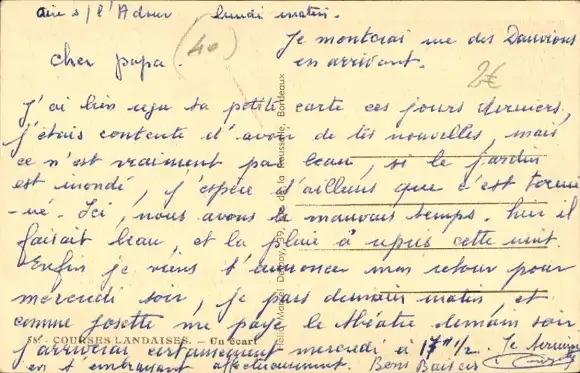 Aire s/ l'Adour lundi matin.
(40)
Je monterai rue des Dauvions
en arrivant.
cher papa.
2€
J'ai bien reçu ta petite carte ces jours derniers,
j'étais contente d'avoir de tes nouvelles, mais
ce n'est vraiment pas beau, si le jardin
est inondé, j'espère d'ailleurs que c'est termi
-né. Ici, nous avons le mauvais temps. hier il
faisait beau, et la pluie à repris cette nuit.
Enfin je viens t'annoncer mon retour pour
mercredi soir, je pars demain matin, et
comme Josette me paye le théâtre demain soir
58 - COURSES LANDAISES. - Un écart
j'arriverai certainement mercredi à 17 H 1/2. Je termine
en t'embrassant affectueusement. Bons Baisers
Bordeaux